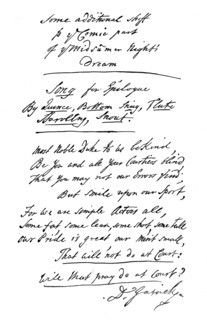 Some additional stuff
to yᵉ Comic part
of yᵉ Midsumer Night's
Dream
Song for Epilogue
By Quince, Bottom Snug, Flute
Starvling, Snout.
Most Noble Duke to us be kind
Be you and all your Courtiers blind
That you may not our Errors find
But smile upon our sport,
For we are simple Actors all,
Some fat some lean, some short some tall
Our Pride is great our merit small,
That will not do at Court:
Will that pray do at Court?
D. Garrick